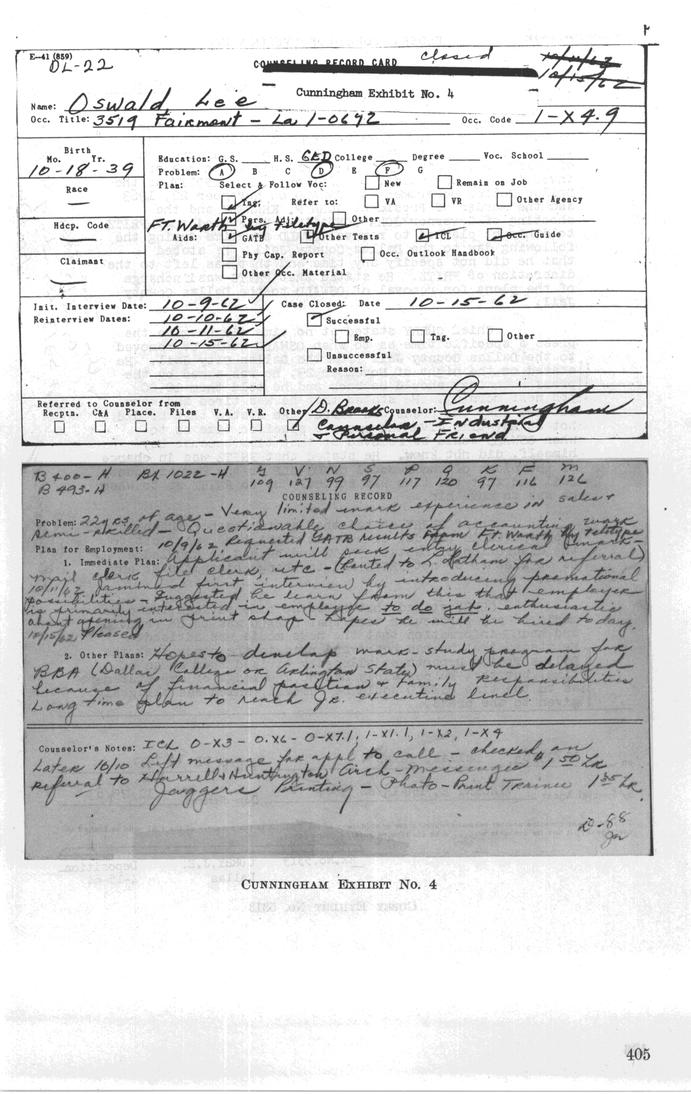 E-41 (859)
DL-22
COUNSELING RECORD CARD
Closed
10/11/62
10/15/62
Cunningham Exhibit No. 4
Name: Oswald, Lee
Occ. Title: 3519 Fairmont - La 1-0692 Occ. Code 1-X4.9
Birth
Mo. Yr.
10-18-39
Race
Hdcp. Code
Claimant
Education: G.S. H.S. GED College Degree Voc. School
Problem: A B C D E F G
Plan: Select & Follow Voc: New Remain on Job
Ing. Refer to: VA VR Other Agency
Pers. Adj. Other
Ft. Worth by Teletype
Aids: GATB Other Tests ICL Occ. Guide
Phy Cap. Report Occ. Outlook Handbook
Other Occ. Material
Init. Interview Date: 10-9-62 Case Closed: Date 10-15-62
Reinterview Dates: 10-10-62 Successful
10-11-62 Emp. Tng. Other
10-15-62 Unsuccessful
Reason:
Referred to Counselor from
Recptn. C&A Place. Files V.A. V.R. Other D. Brooks Counselor: Cunningham
Counselor - Industrial
& Personal Friend
B 400-H BX 1022-H G V N S P Q K F M
B 493-H 109 127 99 97 117 120 97 116 126
COUNSELING RECORD
Problem: 22 yrs of age - Very limited work experience in sales &
semi-skilled - Questionable choice of accounting work
10/9/62 Requested GATB results from Ft. Worth by teletype
Plan for Employment: Applicant will seek entry clerical
1. Immediate Plan:
mail clerk, file clerk, etc - (Routed to L. Latham for referral)
10/11/62 first interview by introducing promotional
possibilities - Suggested he learn from this that employer
is primarily interested in employee to do job. enthusiastic
about opening in print shop - hopes he will be hired today.
10/15/62 Pleased
2. Other Plans: Hopes to develop work-study program for
BBA (Dallas College or Arlington State) must be delayed
because of financial position & family responsibilities
Long time plan to reach Jr. executive level.
Counselor's Notes: ICL 0-X3 - 0-X6 - 0-X7.1, 1-X1.1, 1-X2, 1-X4
Later 10/10 Left message for appl to call - checked on
referral to Harrell & Huntington Arch - Messenger 1 50 hr
Jaggers Printing - Photo-Print Trainee 1 35 hr
D-88
CUNNINGHAM EXHIBIT No. 4
405